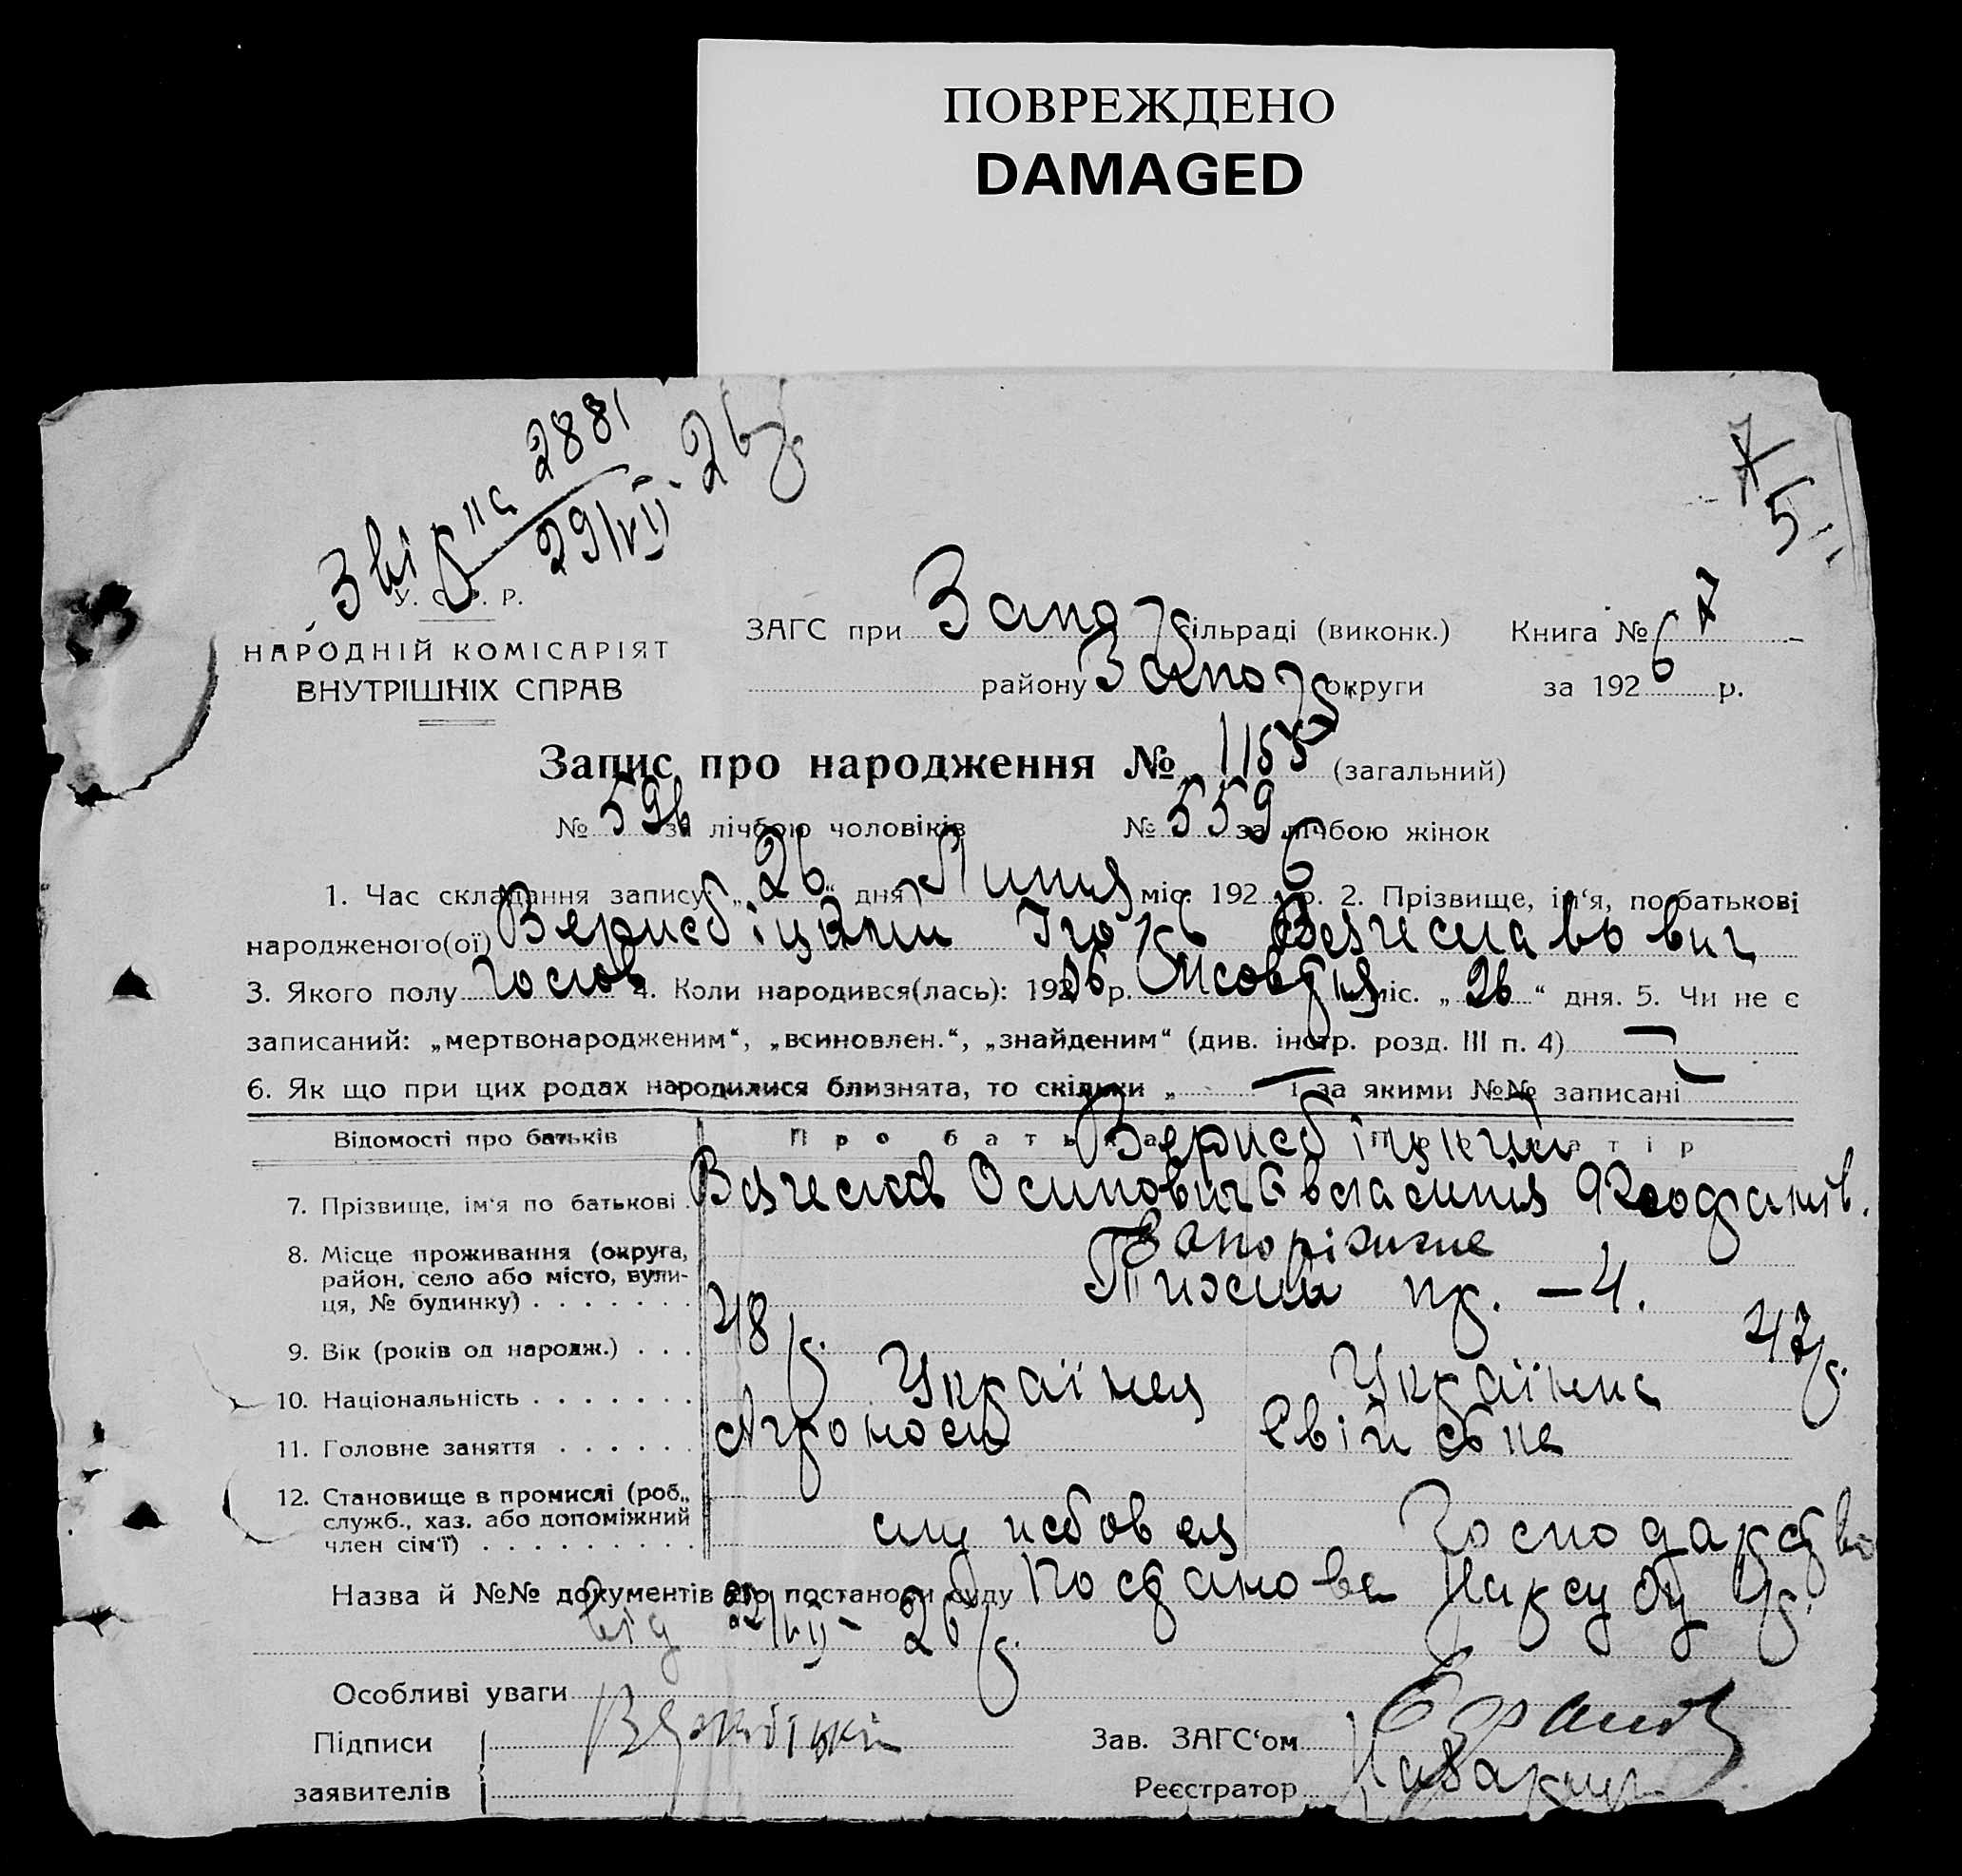 ПОВРЕЖДЕНО
DAMAGED
2881
29/VII 26 р
7
5
У. С. Р. Р.
НАРОДНІЙ КОМІСАРІЯТ
ВНУТРІШНІХ СПРАВ
ЗАГС при Запор сільраді (виконк.) Книга № 7
району Запор округи за 1926 р.
Запис про народження № 1155 (загальний)
№ 596 за лічбою чоловіків № 559 за лічбою жінок
1. Час складання запису „26“ дня Липня міс. 1926 р. 2. Прізвище, ім‘я, по батькові
народженого(ої) Вербіцький Ігор Вячеславович
3. Якого полу 4. Коли народився(лась): 192 р. Жовтня міс. „26“ дня. 5. Чи не є
записаний: „мертвонародженим“, „всиновлен.“, „знайденим“ (див. інстр. розд. III п. 4) —
6. Як що при цих родах народилися близнята, то скільки „ — і за якими №№ записані —
Відомості про батьків Про батька Про матір
Вербіцькі
7. Прізвище, ім‘я по батькові Вячеслав Осипович
8. Місце проживання (округа, Запоріжжя
район, село або місто, вули-
ця, № будинку) . . . . . . . Тихий пр. — 4.
9. Вік (років од народж.) . . . 48 р. 47 р.
10. Національність . . . . . . . Українец Українка
11. Головне заняття . . . . . . Агроном
12. Становище в промислі (роб.,
служб., хаз. або допоміжний
член сім‘ї) . . . . . . . . . . господарство
Назва й №№ документів або постанови суду Постанова Нарсуду
від /VII – 26 р.
Особливі уваги
Підписи Зав. ЗАГС‘ом
заявителів Реєстратор